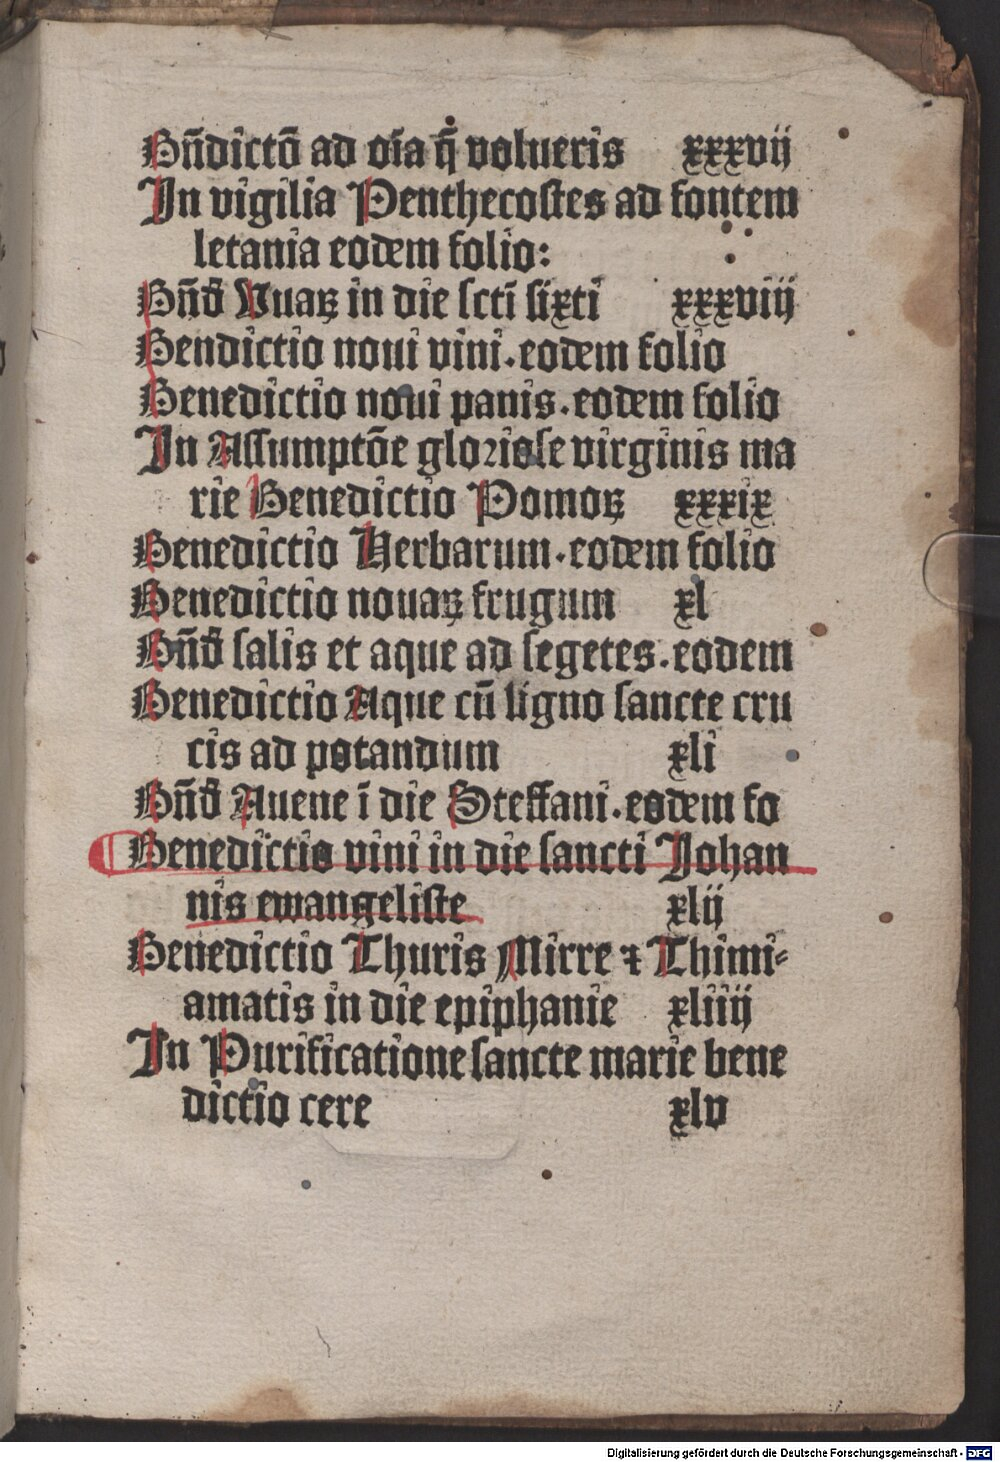 Bñdictō ad oīa q̄ volueris xxxvij
In vigilia Penthecostes ad fontem
letania eodem folio:
Bñd̄ Vuaꝝ in die sctī sixti xxxviij
Bendictio noui vini. eodem folio
Benedictio noui panis. eodem folio
In Assumptōe gloriose virginis ma
rie Benedictio Pomoꝝ xxxix
Benedictio Herbarum. eodem folio
Benedictio nouaꝝ frugum xl
Bñd̄ salis et aque ad segetes. eodem
Benedictio Aque cū ligno sancte cru
cis ad potandum xli
Bñd̄ Auene ī die Steffani. eodem fo
Benedictio vini in die sancti Johan
nis ewangeliste xlij
Benedictio Thuris Mirre ⁊ Thimi⸗
amatis in die epiphanie xliiij
In Purificatione sancte marie bene
dictio cere xlv
Digitalisierung gefördert durch die Deutsche Forschungsgemeinschaft - DFG